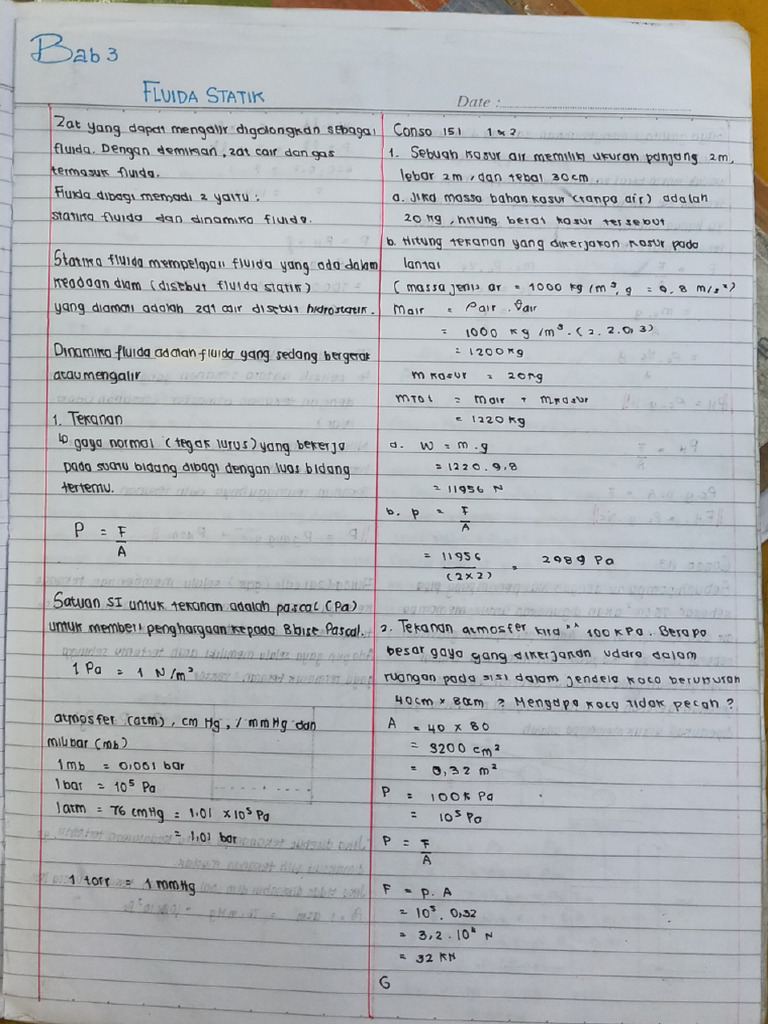 Bab 3
FLUIDA STATIK
Date :
Zat yang dapat mengalir digolongkan sebagai
fluida. Dengan demikian, zat cair dan gas
termasuk fluida.
Fluida dibagi menjadi 2 yaitu :
statika fluida dan dinamika fluida.
Statika fluida mempelajari fluida yang ada dalam
keadaan diam (disebut fluida statik)
yang diamati adalah zat cair disebut hidrostatik.
Dinamika fluida adalah fluida yang sedang bergerak
atau mengalir
1. Tekanan
↳ gaya normal (tegak lurus) yang bekerja
pada suatu bidang dibagi dengan luas bidang
tertentu.
P = F
A
Satuan SI untuk tekanan adalah pascal (Pa)
untuk memberi penghargaan kepada Blaise Pascal.
1 Pa = 1 N/m²
atmosfer (atm), cm Hg, / mmHg dan
milibar (mb)
1 mb = 0,001 bar
1 bar = 10⁵ Pa
1 atm = 76 cmHg = 1.01 × 10⁵ Pa
= 1,01 bar
1 torr = 1 mmHg
Conso 15.1 1 & 2
1. Sebuah kasur air memiliki ukuran panjang 2m,
lebar 2m, dan tebal 30 cm.
a. Jika massa bahan kasur (tanpa air) adalah
20 kg, hitung berat kasur tersebut
b. Hitung tekanan yang dikerjakan kasur pada
lantai
(massa jenis air = 1000 kg/m³, g = 9.8 m/s²)
Mair = ρair . Vair
= 1000 kg/m³ . (2. 2. 0,3)
= 1200 kg
m kasur = 20 kg
mTot = mair + mkasur
= 1220 kg
a. W = m.g
= 1220 . 9,8
= 11956 N
b. P = F
A
= 11956 = 2989 Pa
(2×2)
2. Tekanan atmosfer kira" 100 kPa. Berapa
besar gaya yang dikerjakan udara dalam
ruangan pada sisi dalam jendela kaca berukuran
40cm × 80cm ? Mengapa kaca tidak pecah ?
A = 40 × 80
= 3200 cm²
= 0,32 m²
P = 100 k Pa
= 10⁵ Pa
P = F
A
F = P. A
= 10⁵ . 0,32
= 3,2 . 10⁴ N
= 32 KN
G